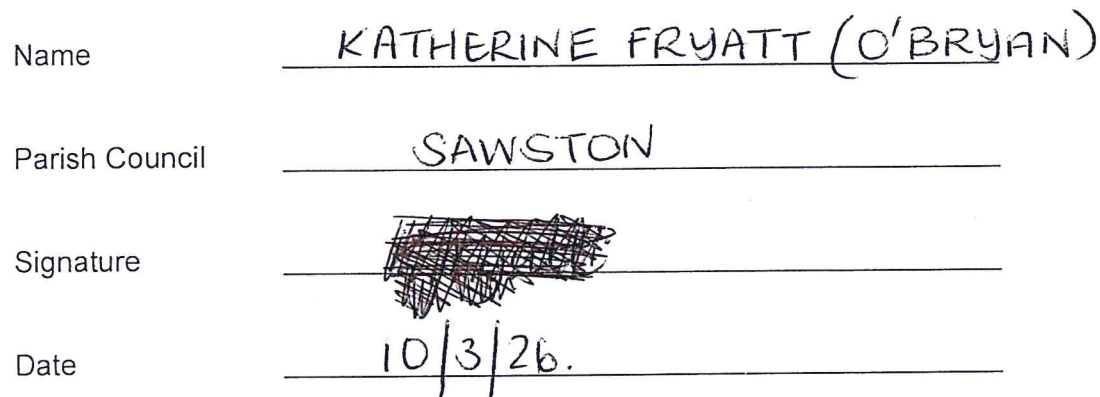 Name KATHERINE FRYATT (O'BRYAN)
Parish Council SAWSTON
Signature
Date 10/3/26.